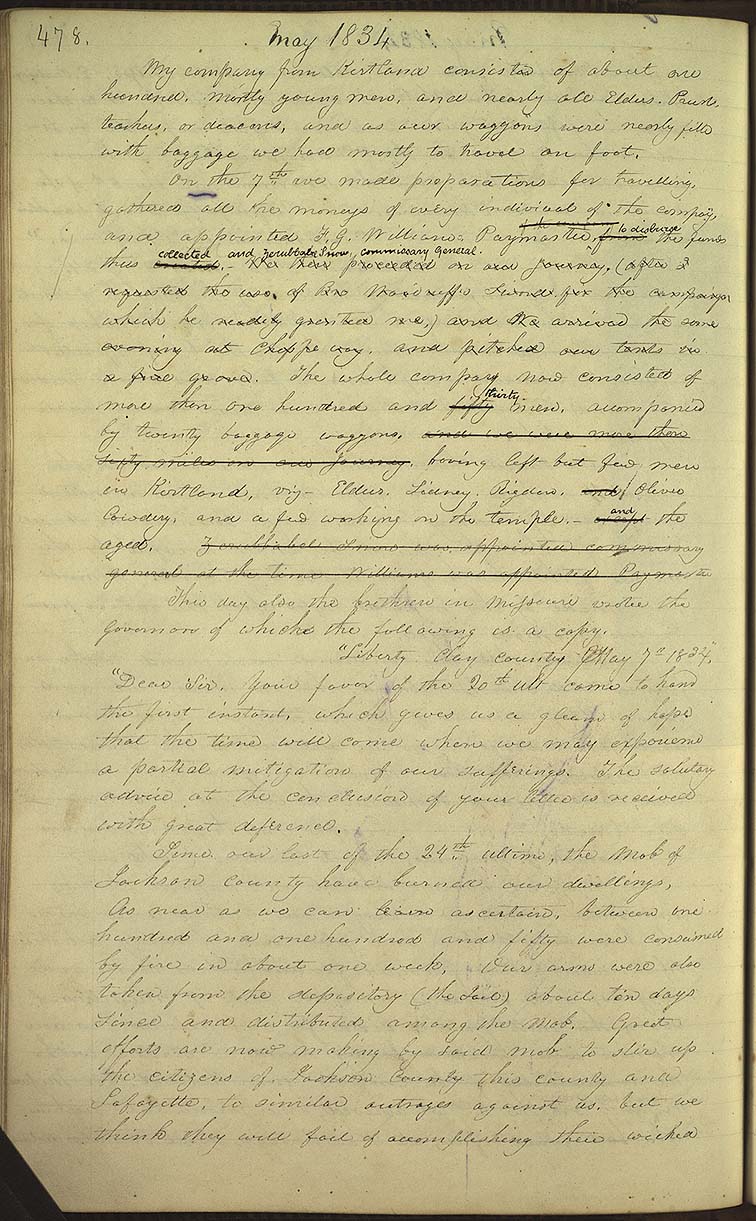 478.
May 1834
My company from Kirtland consisted of about one
hundred, mostly young men, and nearly all Elders. Priests,
teachers, or deacons, and as our waggons were nearly filled
with baggage we had mostly to travel on foot.
On the 7th we made preparations for travelling,
gathered all the moneys of every individual of the company,
and appointed F. G. Williams Paymaster, to disburse the funds
thus collected, and Zerubbabel Snow, commissary General. We then proceeded on our journey. (after I
requested the use of Bro sword for the campaign
which he readily granted me,) and We arrived the same
evening at Chippeway. and pitched our tents in
a fine grove. The whole company now consisted of
more than one hundred and fifty thirty men, accompanied
by twenty baggage waggons. and we were more than
fifty miles on our journey. having left but few men
in Kirtland, viz- Elders. Sidney, Rigdon. and Oliver
Cowdery, and a few working on the temple.- except and the
aged. Zerubbabel Snow was appointed commissary
general at the time Williams was appointed Paymaster
This day also the brethren in Missouri wrote the
governor of which the following is a copy.
"Liberty Clay County May 7th 1834".
"Dear Sir, Your favor of the 20th ult came to hand
the first instant, which gives us a gleam of hope
that the time will come when we may experience
a partial mitigation of our sufferings. The salutary
advice at the conclusion of your letter is received
with great deference.
Since our last of the 24th ultimo, the Mob of
Jackson County have burned our dwellings,
As near as we can learn ascertain, between one
hundred and one hundred and fifty were consumed
by fire in about one week, Our arms were also
taken from the depository (the Jail) about ten days
since and distributed among the Mob. Great
efforts are now making by said mob to stir up
the citizens of Jackson County this county and
Lafayette, to similar outrages against us, but we
think they will fail of accomplishing their wicked